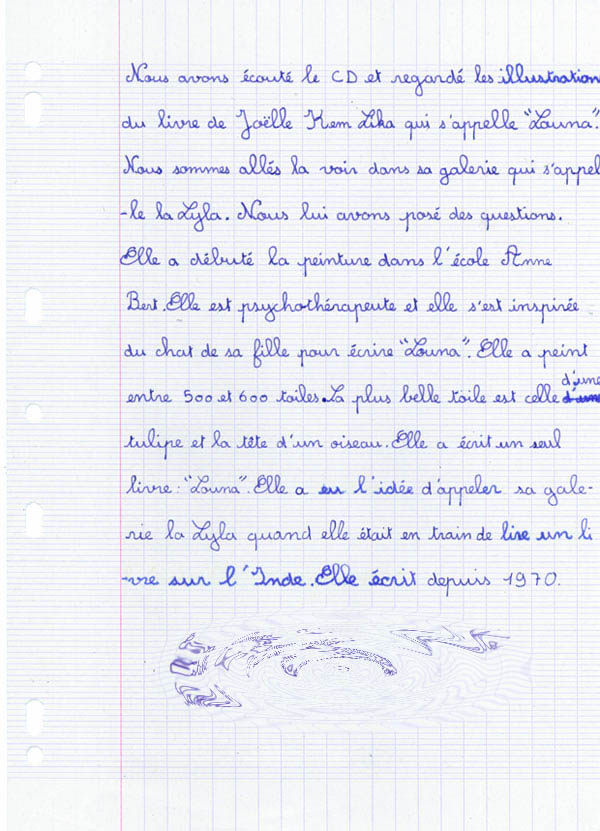 Nous avons écouté le CD et regardé les illustration
du livre de Joëlle Kem Lika qui s'appelle "Louna".
Nous sommes allés la voir dans sa galerie qui s'appel
-le la Lyla. Nous lui avons posé des questions.
Elle a débuté la peinture dans l'école Anne
Bert. Elle est psychothérapeute et elle s'est inspirée
du chat de sa fille pour écrire "Louna". Elle a peint
entre 500 et 600 toiles. La plus belle toile est celle d'une
tulipe et la tête d'un oiseau. Elle a écrit un seul
livre : "Louna". Elle a eu l'idée d'appeler sa gale-
rie la Lyla quand elle était en train de lire un li
-vre sur l'Inde. Elle écrit depuis 1970.